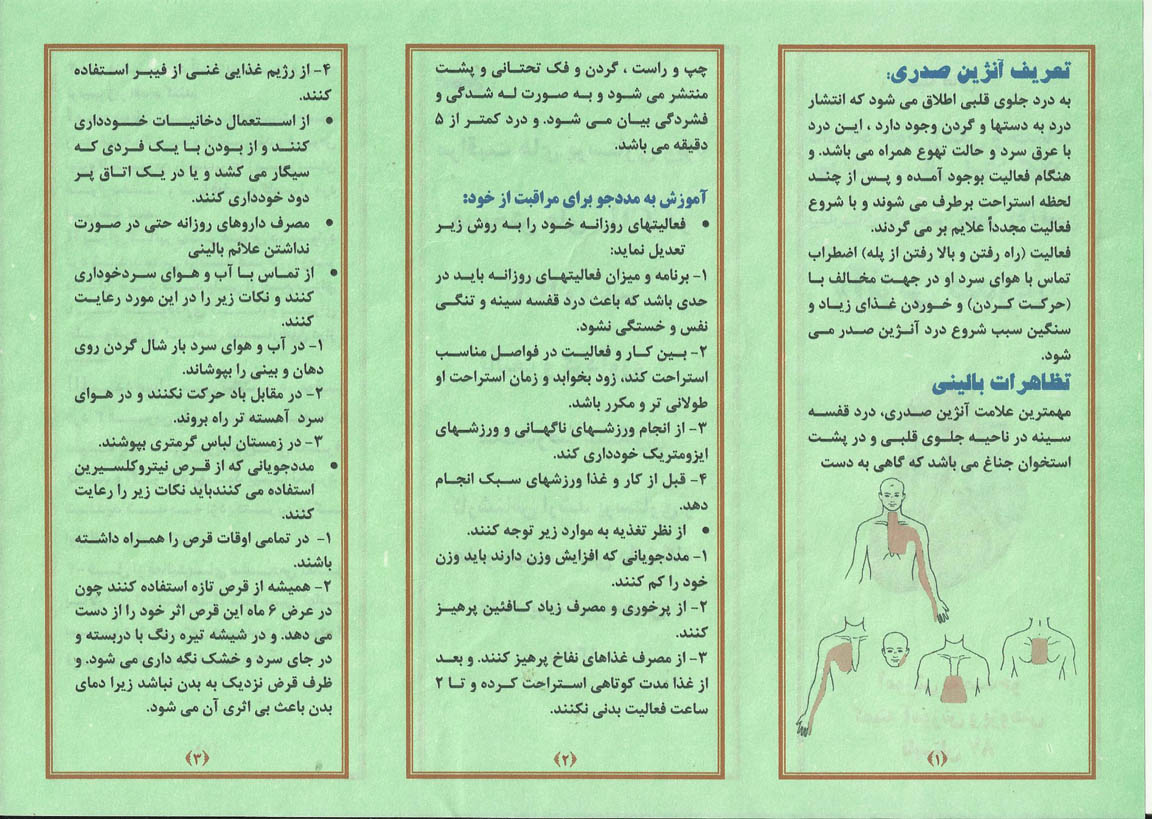 تعریف آنژین صدری:
به درد جلوی قلبی اطلاق می شود که انتشار
درد به دستها و گردن وجود دارد ، این درد
با عرق سرد و حالت تهوع همراه می باشد. و
هنگام فعالیت بوجود آمده و پس از چند
لحظه استراحت برطرف می شوند و با شروع
فعالیت مجدداً علایم بر می گردند.
فعالیت (راه رفتن و بالا رفتن از پله) اضطراب
تماس با هوای سرد او در جهت مخالف با
(حرکت کردن) و خوردن غذای زیاد و
سنگین سبب شروع درد آنژین صدر می
شود.
تظاهرات بالینی
مهمترین علامت آنژین صدری، درد قفسه
سینه در ناحیه جلوی قلبی و در پشت
استخوان جناغ می باشد که گاهی به دست
(۱)
چپ و راست ، گردن و فک تحتانی و پشت
منتشر می شود و به صورت له شدگی و
فشردگی بیان می شود. و درد کمتر از ۵
دقیقه می باشد.
آموزش به مددجو برای مراقبت از خود:
• فعالیتهای روزانه خود را به روش زیر
تعدیل نماید:
۱- برنامه و میزان فعالیتهای روزانه باید در
حدی باشد که باعث درد قفسه سینه و تنگی
نفس و خستگی نشود.
۲- بین کار و فعالیت در فواصل مناسب
استراحت کند، زود بخوابد و زمان استراحت او
طولانی تر و مکرر باشد.
۳- از انجام ورزشهای ناگهانی و ورزشهای
ایزومتریک خودداری کند.
۴- قبل از کار و غذا ورزشهای سبک انجام
دهد.
• از نظر تغذیه به موارد زیر توجه کنند.
۱- مددجویانی که افزایش وزن دارند باید وزن
خود را کم کنند.
۲- از پرخوری و مصرف زیاد کافئین پرهیز
کنند.
۳- از مصرف غذاهای نفاخ پرهیز کنند. و بعد
از غذا مدت کوتاهی استراحت کرده و تا ۲
ساعت فعالیت بدنی نکنند.
(۲)
۴- از رژیم غذایی غنی از فیبر استفاده
کنند.
• از استعمال دخانیات خودداری
کنند و از بودن با یک فردی که
سیگار می کشد و یا در یک اتاق پر
دود خودداری کنند.
• مصرف داروهای روزانه حتی در صورت
نداشتن علائم بالینی
• از تماس با آب و هوای سردخوداری
کنند و نکات زیر را در این مورد رعایت
کنند.
۱- در آب و هوای سرد بار شال گردن روی
دهان و بینی را بپوشاند.
۲- در مقابل باد حرکت نکنند و در هوای
سرد آهسته تر راه بروند.
۳- در زمستان لباس گرمتری بپوشند.
• مددجویانی که از قرص نیتروکلسیرین
استفاده می کنندباید نکات زیر را رعایت
کنند.
۱- در تمامی اوقات قرص را همراه داشته
باشند.
۲- همیشه از قرص تازه استفاده کنند چون
در عرض ۶ ماه این قرص اثر خود را از دست
می دهد. و در شیشه تیره رنگ با دربسته و
در جای سرد و خشک نگه داری می شود. و
ظرف قرض نزدیک به بدن نباشد زیرا دمای
بدن باعث بی اثری آن می شود.
(۳)